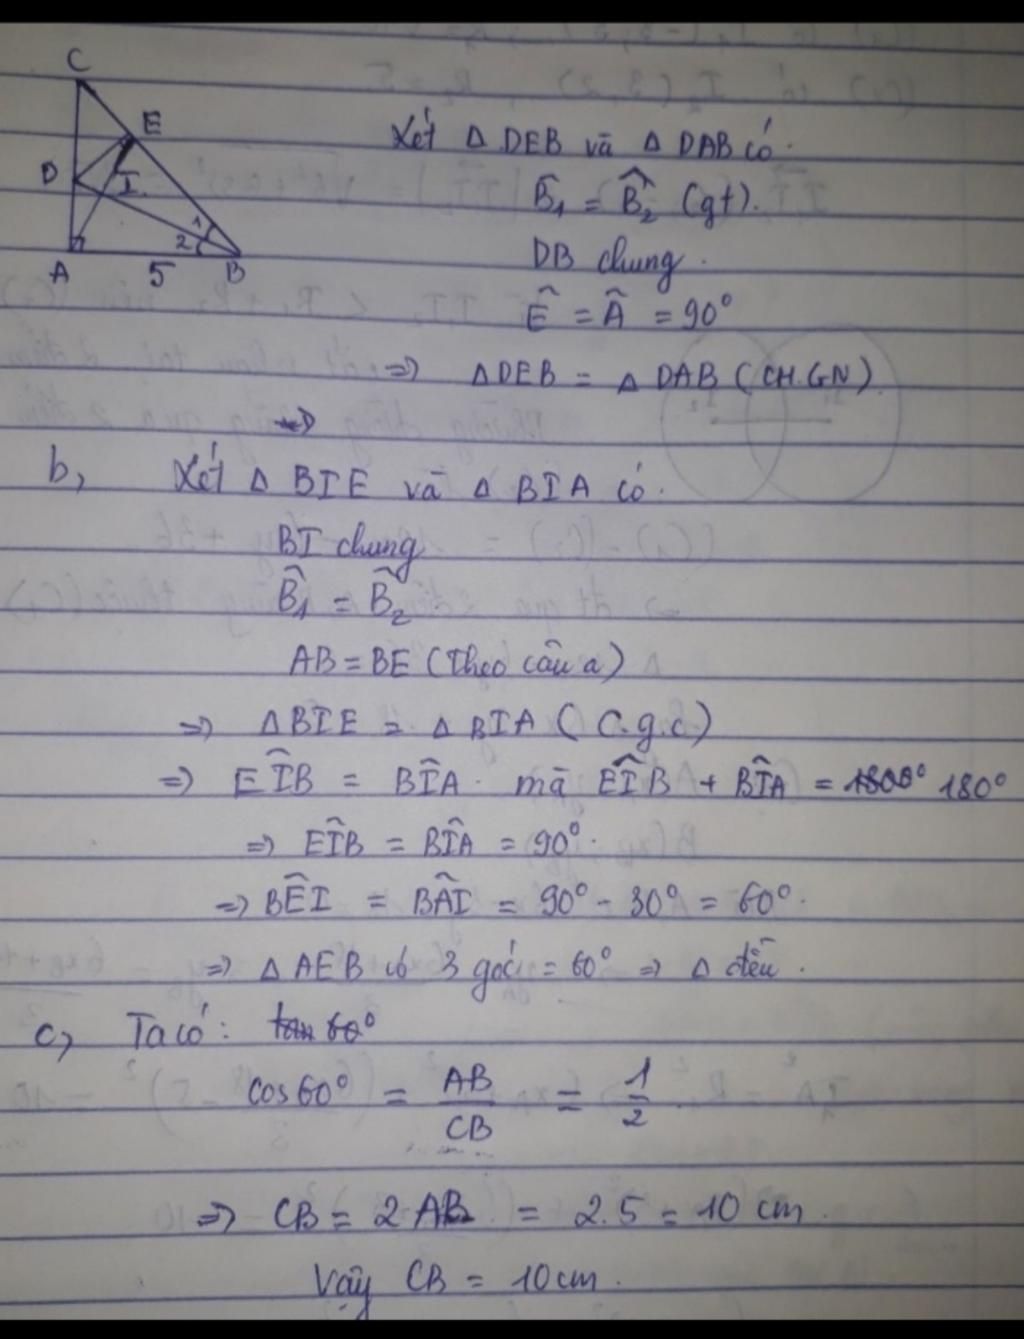 C
E
D
I
1
2
A
5
B
Xét Δ DEB và Δ DAB có
B̂₁ = B̂₂ (gt).
DB chung.
Ê = Â = 90°
=> ΔDEB = Δ DAB (CH.GN)
b, Xét Δ BIE và Δ BIA có.
BI chung
B̂₁ = B̂₂
AB = BE (Theo câu a)
=> ΔBIE = Δ BIA (C.g.c)
=> EÎB = BÎA. mà EÎB + BÎA = 180°
=> EÎB = BÎA = 90°.
=> BÊI = BÂI = 90° - 30° = 60°.
=> Δ AEB có 3 góc = 60° => Δ đều.
c, Ta có: tan 60°
cos60° = AB/CB = 1/2
=> CB = 2AB = 2.5 = 10 cm.
Vậy CB = 10cm.